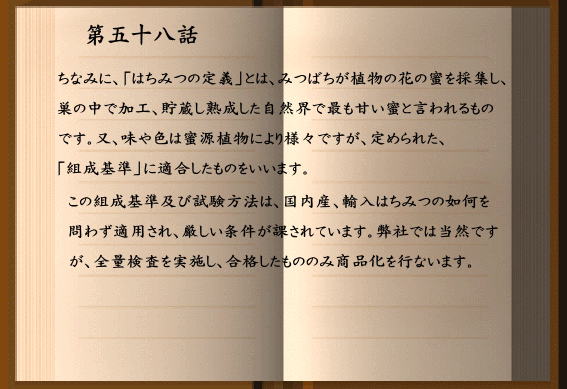 第五十八話
ちなみに、「はちみつの定義」とは、みつばちが植物の花の蜜を採集し、
巣の中で加工、貯蔵し熟成した自然界で最も甘い蜜と言われるもの
です。又、味や色は蜜源植物により様々ですが、定められた、
「組成基準」に適合したものをいいます。
この組成基準及び試験方法は、国内産、輸入はちみつの如何を
問わず適用され、厳しい条件が課されています。弊社では当然です
が、全量検査を実施し、合格したもののみ商品化を行ないます。